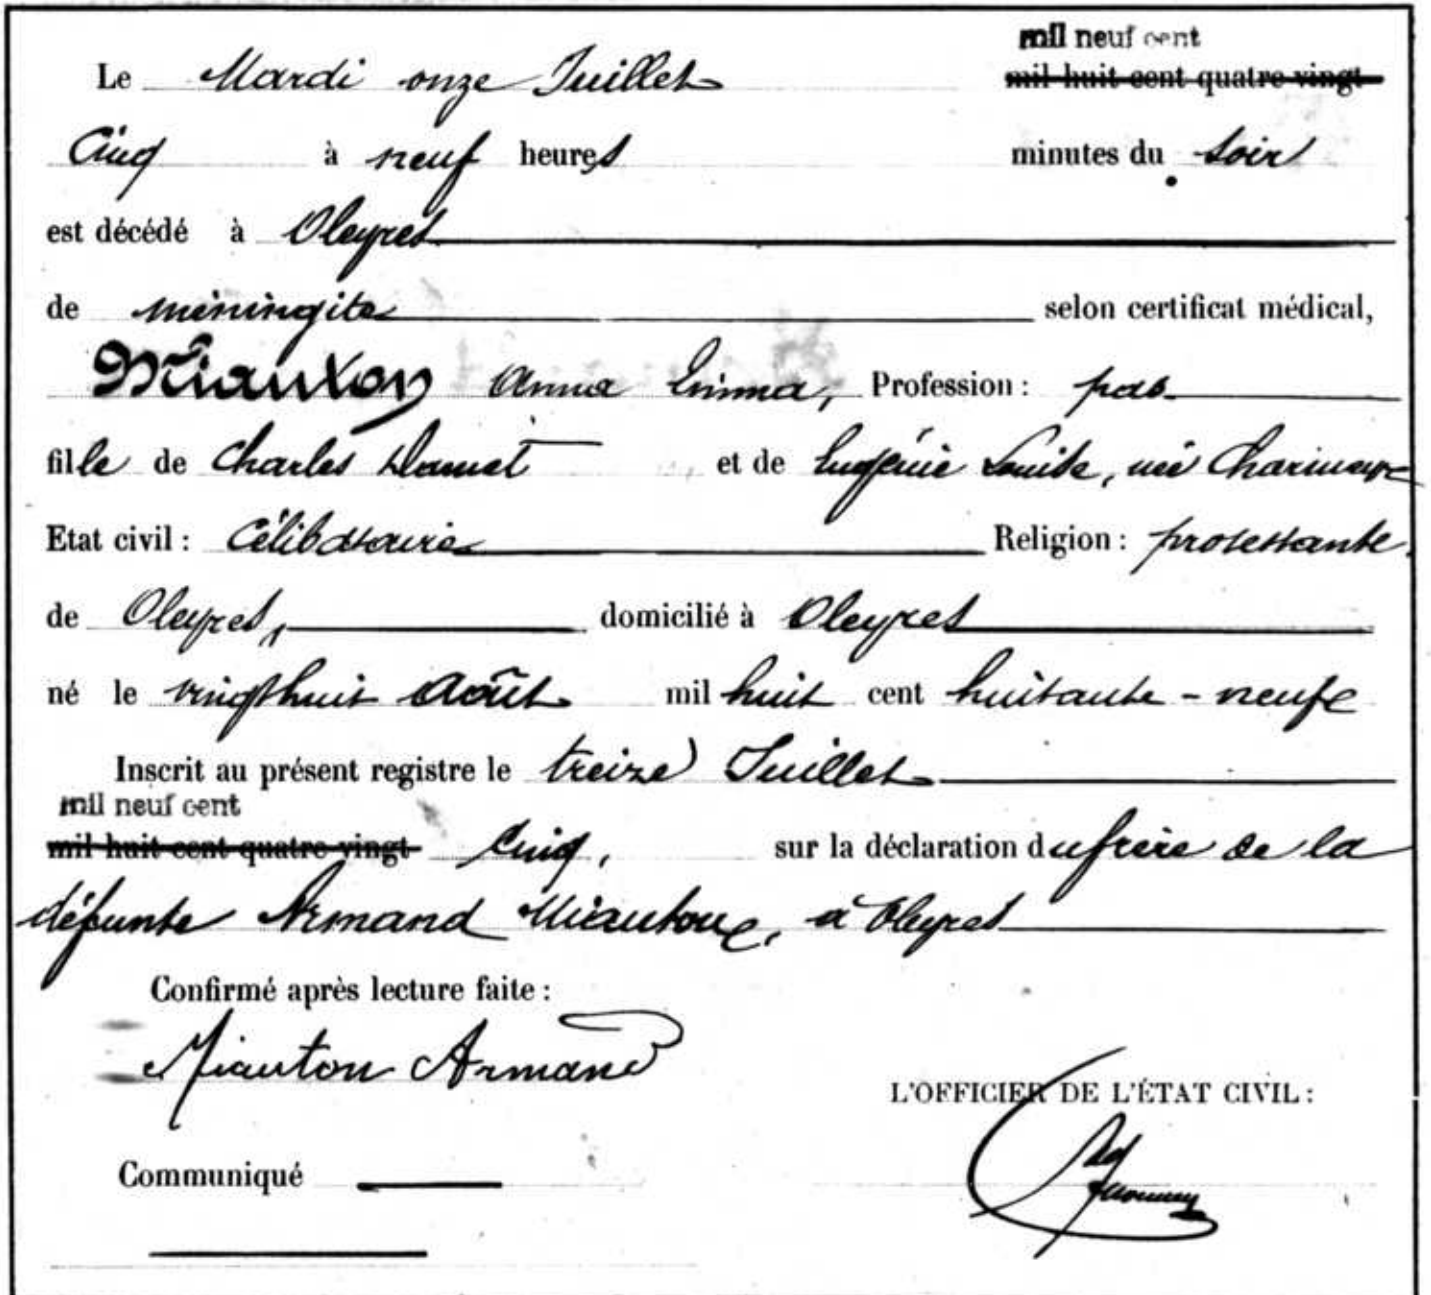 mil neuf cent
Le Mardi onze Juillet mil huit cent quatre vingt
Cinq à neuf heures minutes du soir
est décédé à Oleyres
de méningite selon certificat médical,
Miauton Anna Emma, Profession : pas
fille de Charles Samuel et de Eugénie Louise, née
Etat civil : Célibataire Religion : protestante.
de Oleyres, domicilié à Oleyres
né le vingthuit Août mil huit cent huitante-neuf
Inscrit au présent registre le treize Juillet
mil neuf cent
mil huit cent quatre vingt cinq, sur la déclaration du frère de la
défunte Armand Miauton, à Oleyres
Confirmé après lecture faite :
Miauton Armand
L'OFFICIER DE L'ÉTAT CIVIL :
Communiqué